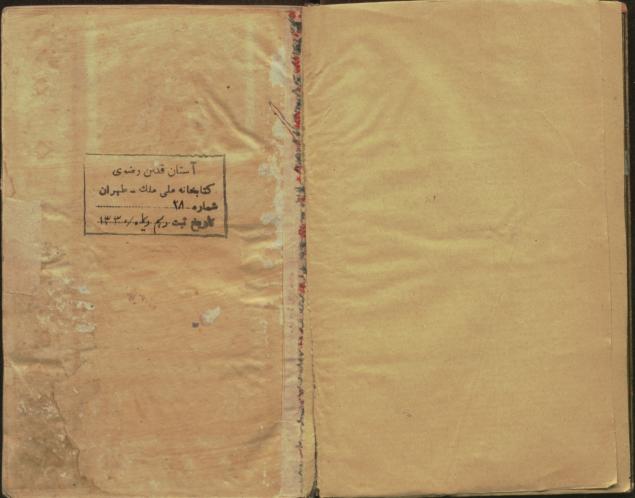 آستان قدس رضوی
کتابخانه ملی ملك - طهران
شماره ۲۸
تاریخ ثبت ۱۳۳۰